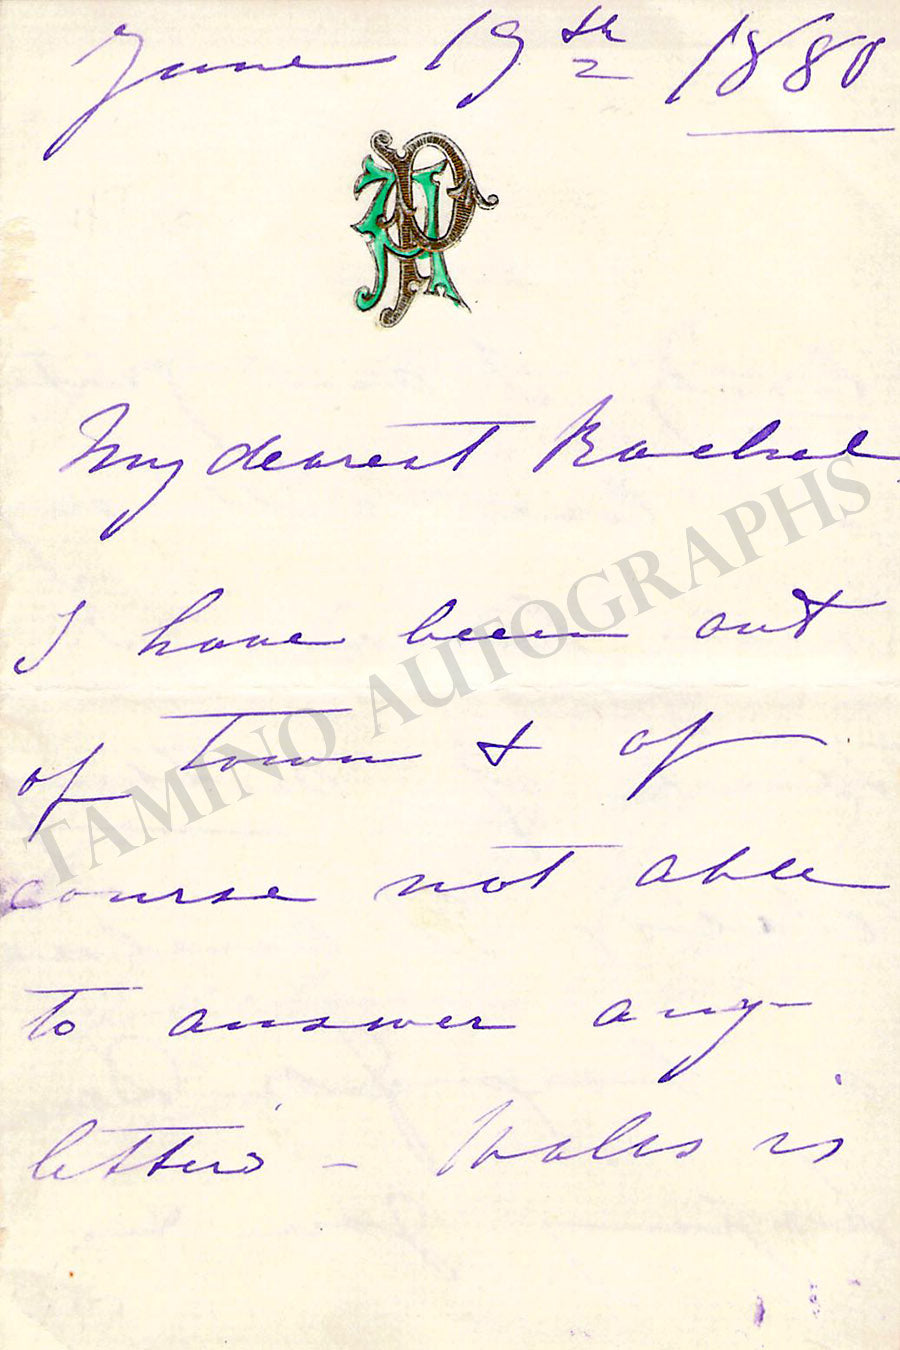 June 19th 1880
AP
My dearest Rachel
I have been out
of Town & of
course not able
to answer any
letters – Wales is
TAMINO AUTOGRAPHS